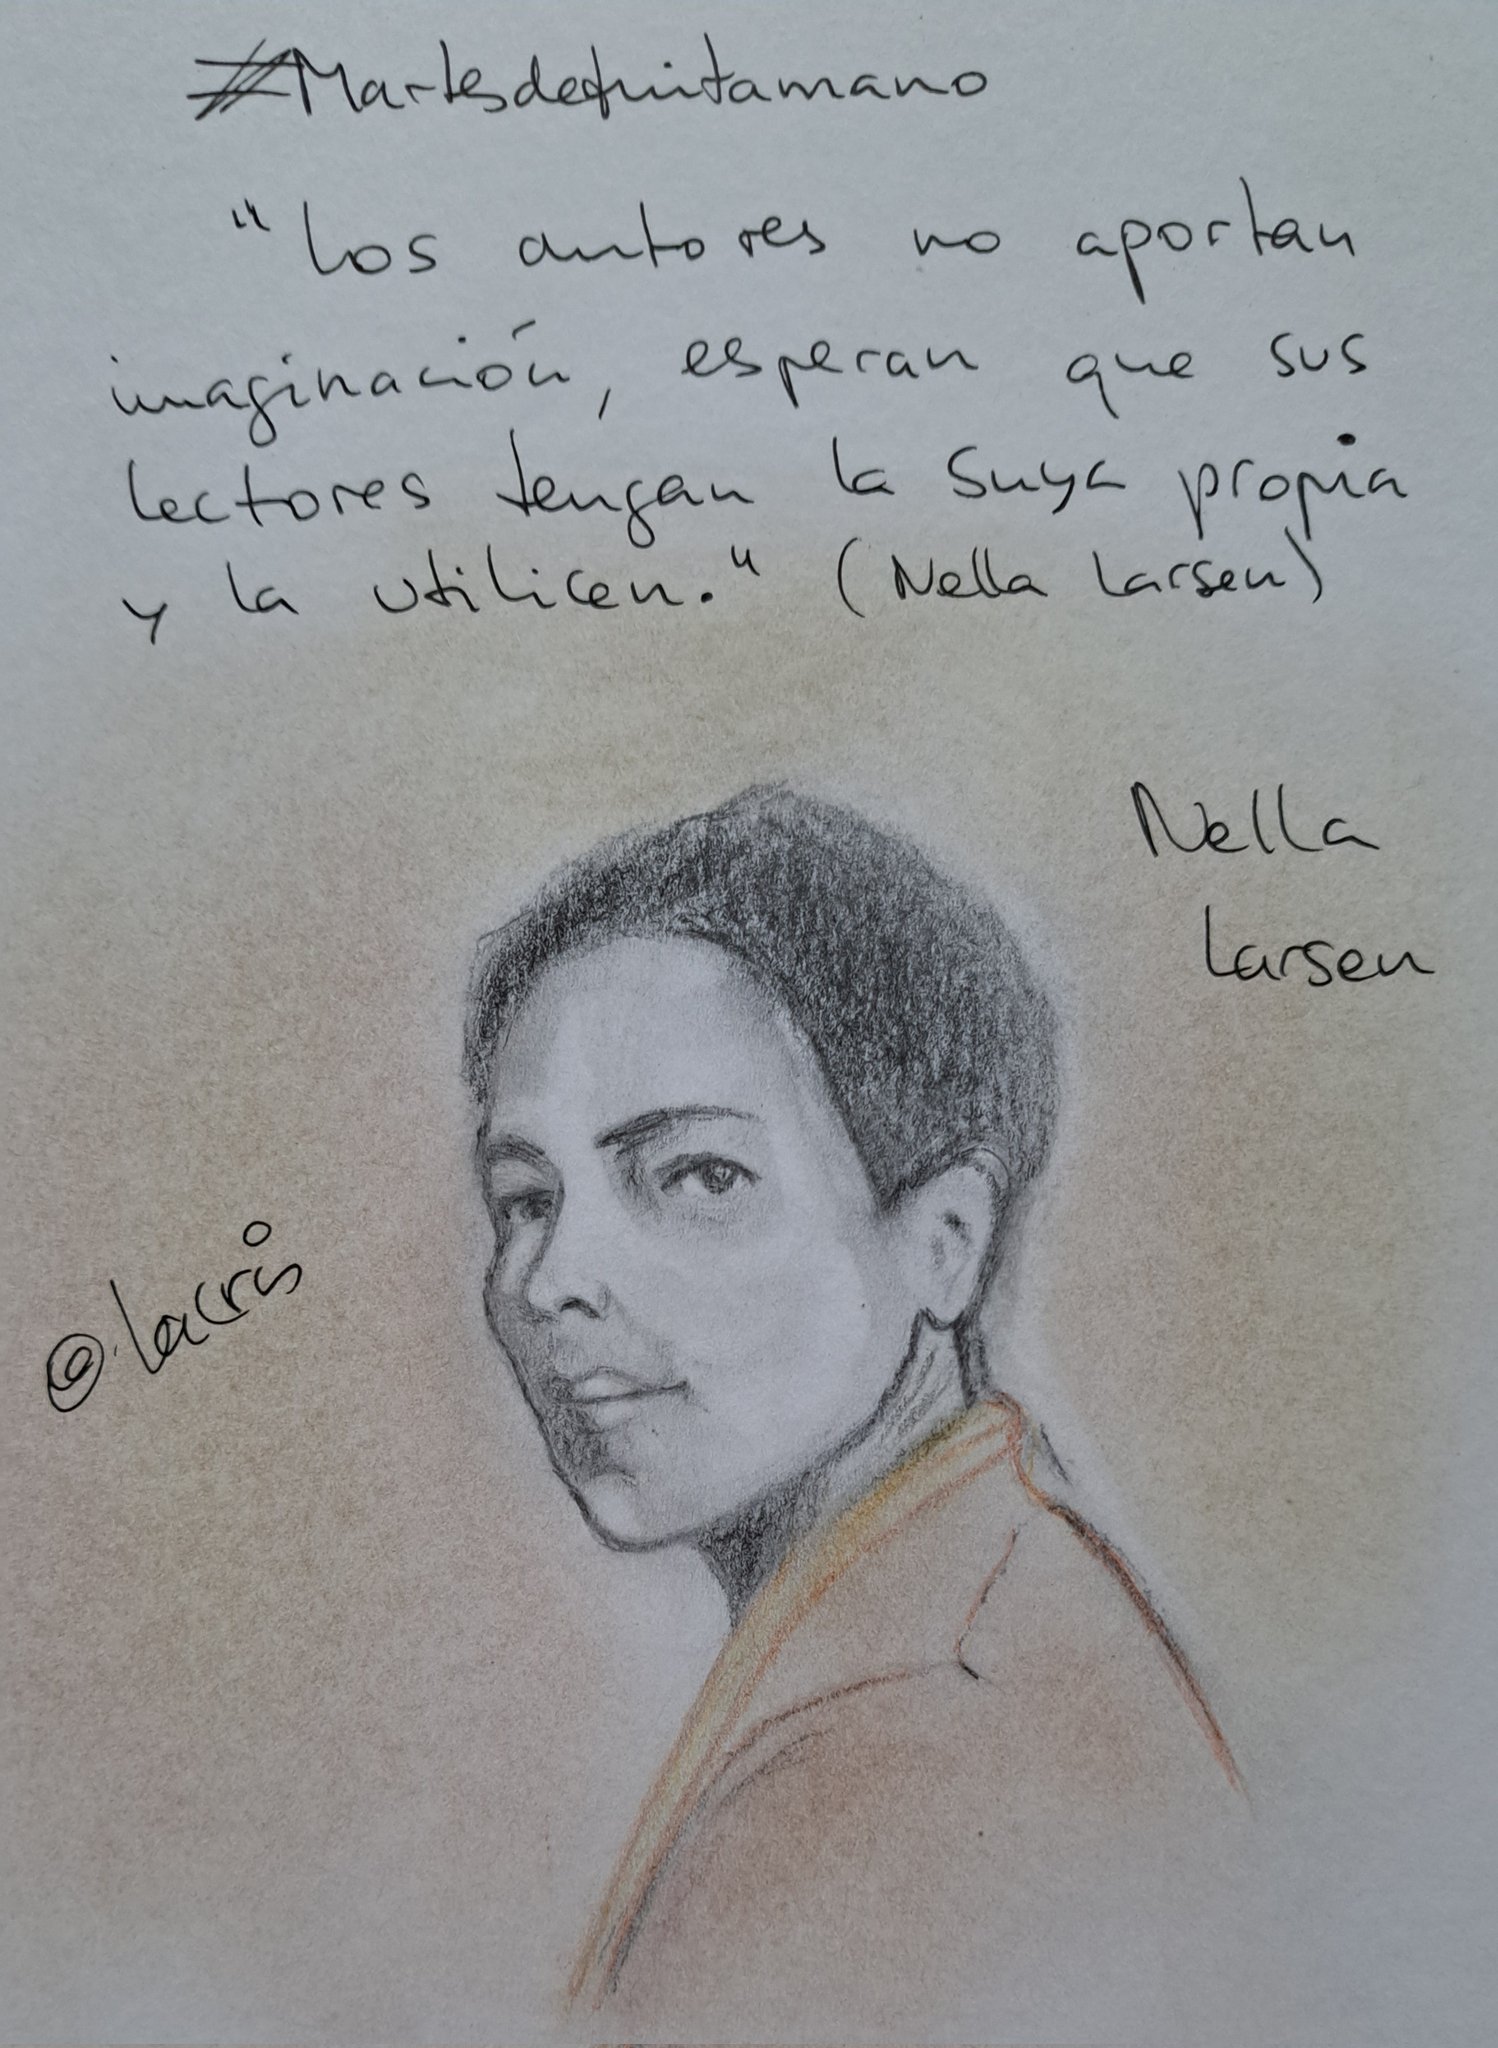 #Martesdetuitamano
"Los autores no aportan
imaginación, esperan que sus
lectores tengan la suya propia
y la utilicen." (Nella Larsen)
Nella
Larsen
@.lacris